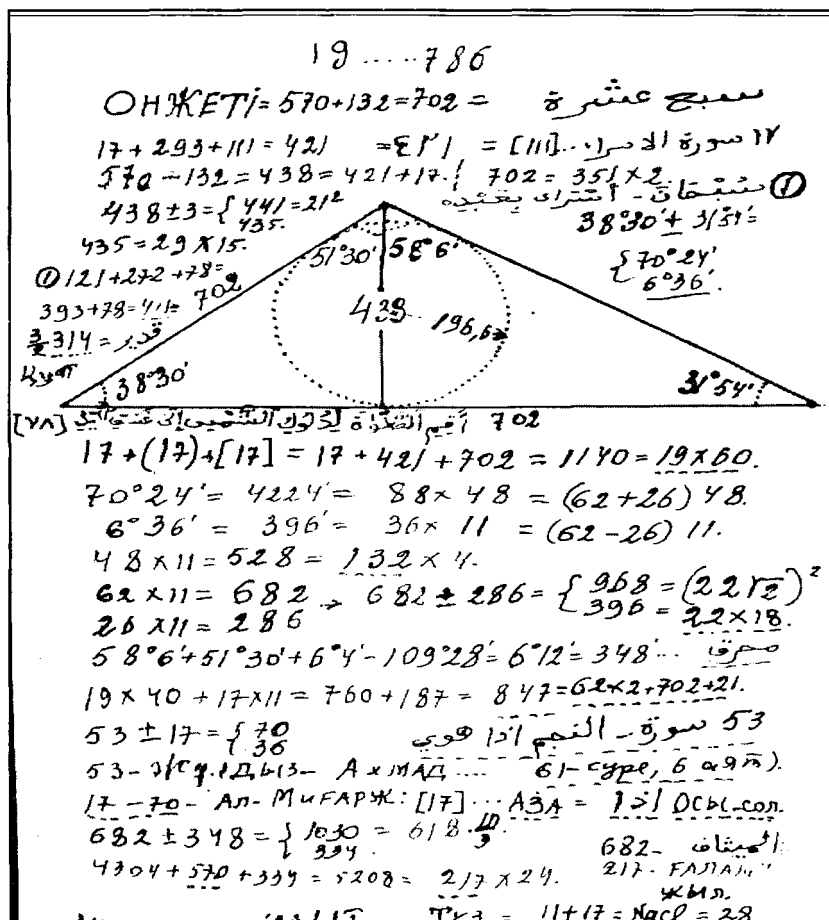 19 ..... 786
ОНЖЕТІ = 570+132=702 = سبع عشرة
17 + 293 + 111 = 421 = ٤٢١ = [111]... ١٧ سورة الاسراء
570 - 132 = 438 = 421 + 17. 702 = 351 × 2.
438 ± 3 = { 441 = 21²
435.
38°30' ± 31°54' =
{ 70°24'
6°36'.
435 = 29 × 15.
① 121 + 272 + 78 =
393 + 78 =
702
51°30' 58°6'
438
196,62
314 = قدير
38°30' 31°54'
[٧٨] أقم الصلوة لدلوك الشمس إلى غسق اليل 702
17 + (17) + [17] = 17 + 421 + 702 = 1140 = 19 × 60.
70°24' = 4224' = 88 × 48 = (62 + 26) 48.
6°36' = 396' = 36 × 11 = (62 - 26) 11.
48 × 11 = 528 = 132 × 4.
62 × 11 = 682 → 682 ± 286 = { 968 = (22√2)²
26 × 11 = 286 396 = 22 × 18.
58°6' + 51°30' + 6°4' - 109°28' = 6°12' = 348' ...
19 × 40 + 17 × 11 = 760 + 187 = 847 = 62 × 2 + 702 + 21.
53 ± 17 = { 70
36
53 سورة - النجم اذا هوي
53 - ЖҰЛДЫЗ - АхМАД .... 61-сүре, 6 аят).
17 - 70 - Ал- МиҒАРЖ: [17] ... АЗА = اذا Осы-сол.
682 ± 348 = { 1030 = 618 · 10/3
334.
682 -
4304 + 570 + 334 = 5208 = 217 × 24. 217 - ҒАЛАМ
жыл.
11 + 17 = = 28